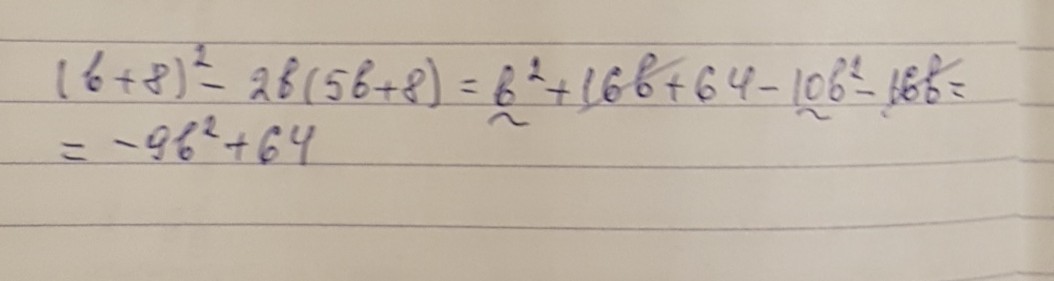 (b+8)² - 2b(5b+8) = b² + 16b + 64 - 10b² - 16b =
= -9b² + 64